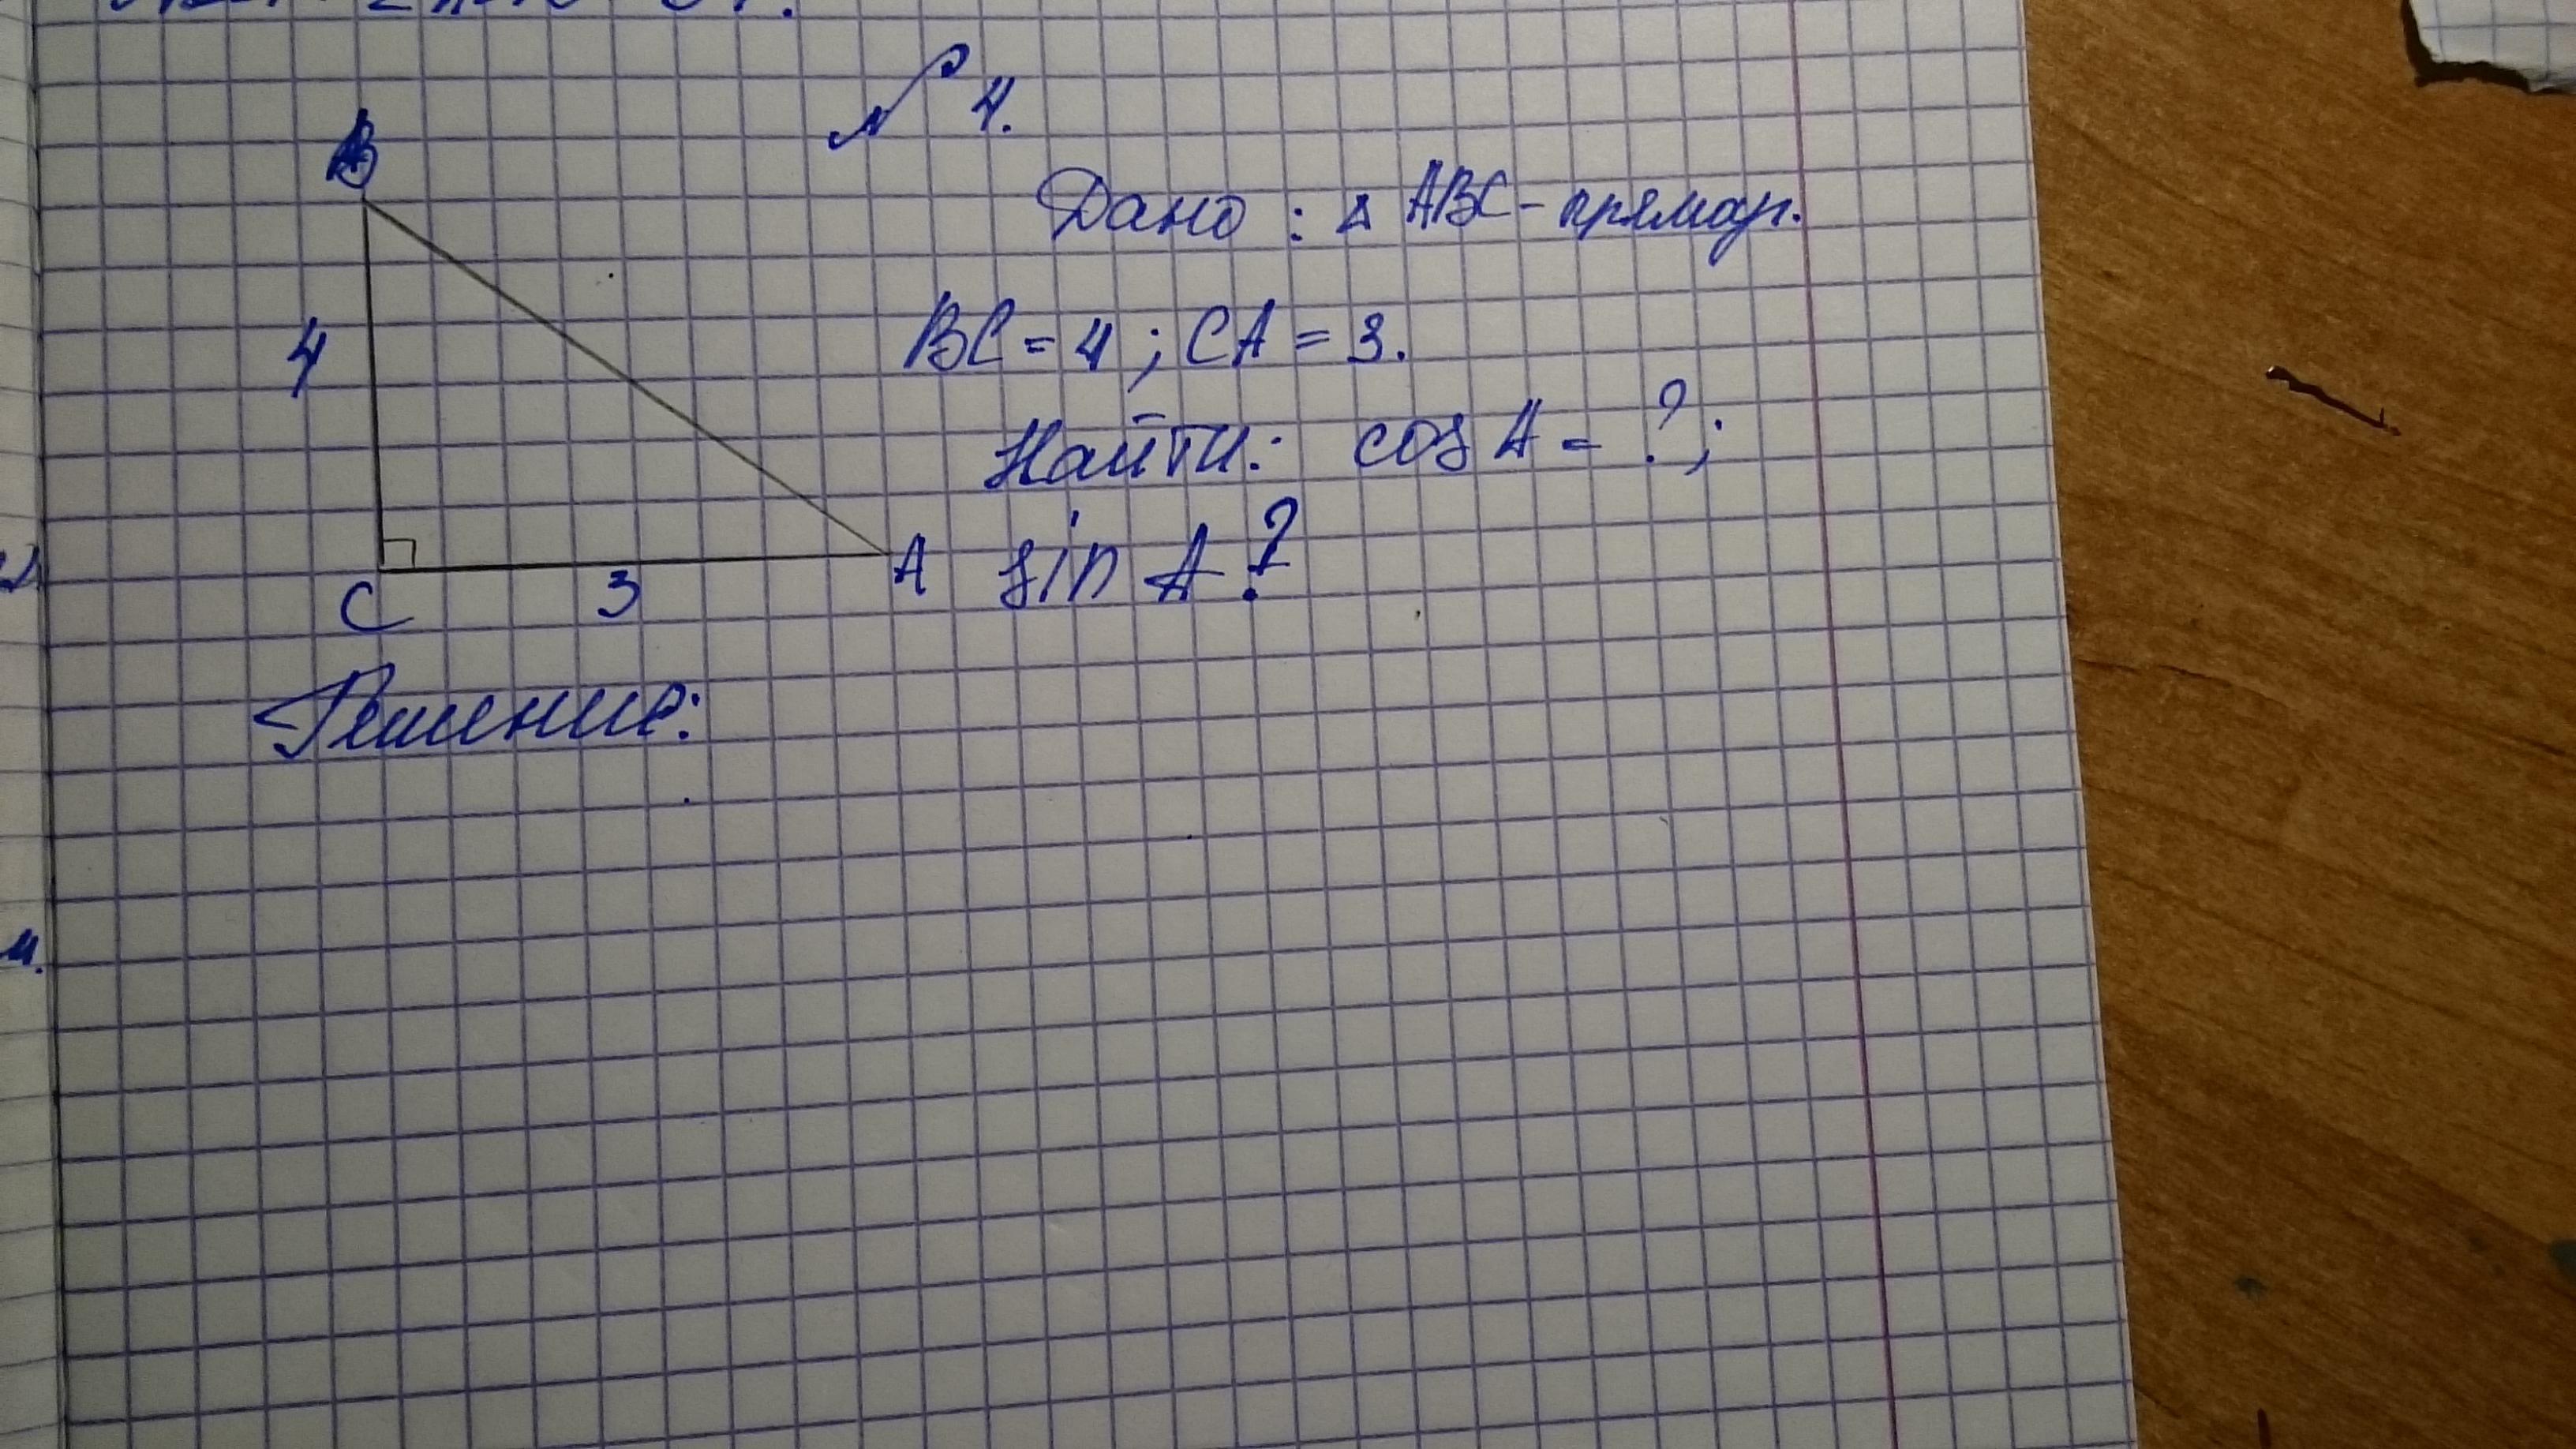 № 4.
B
Дано: △ ABC - прямоуг.
4
BC = 4; CA = 3.
Найти: cos A = ?;
A
sin A ?
C
3
Решение: